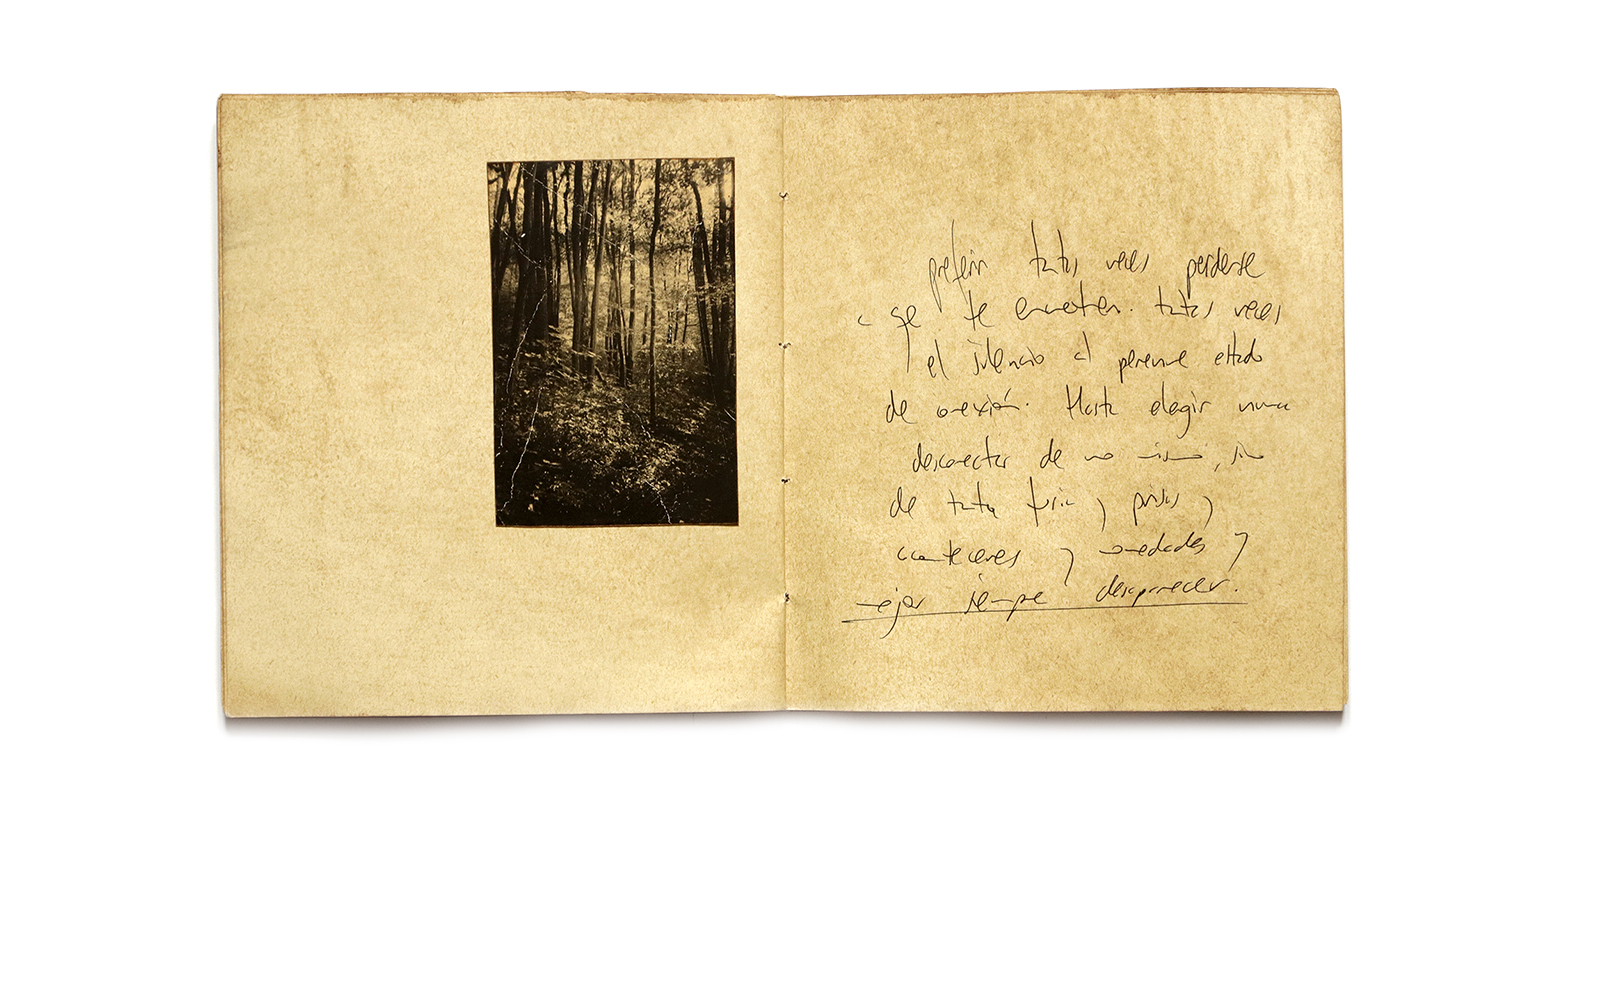 preferir tantas veces perderse
a que te encuentren. tantas veces
el silencio al perenne estado
de conexión. Hasta elegir nunca
desconectar de uno mismo, sino
de tanta furia, prisas,
aconteceres y novedades y
mejor siempre desaparecer.